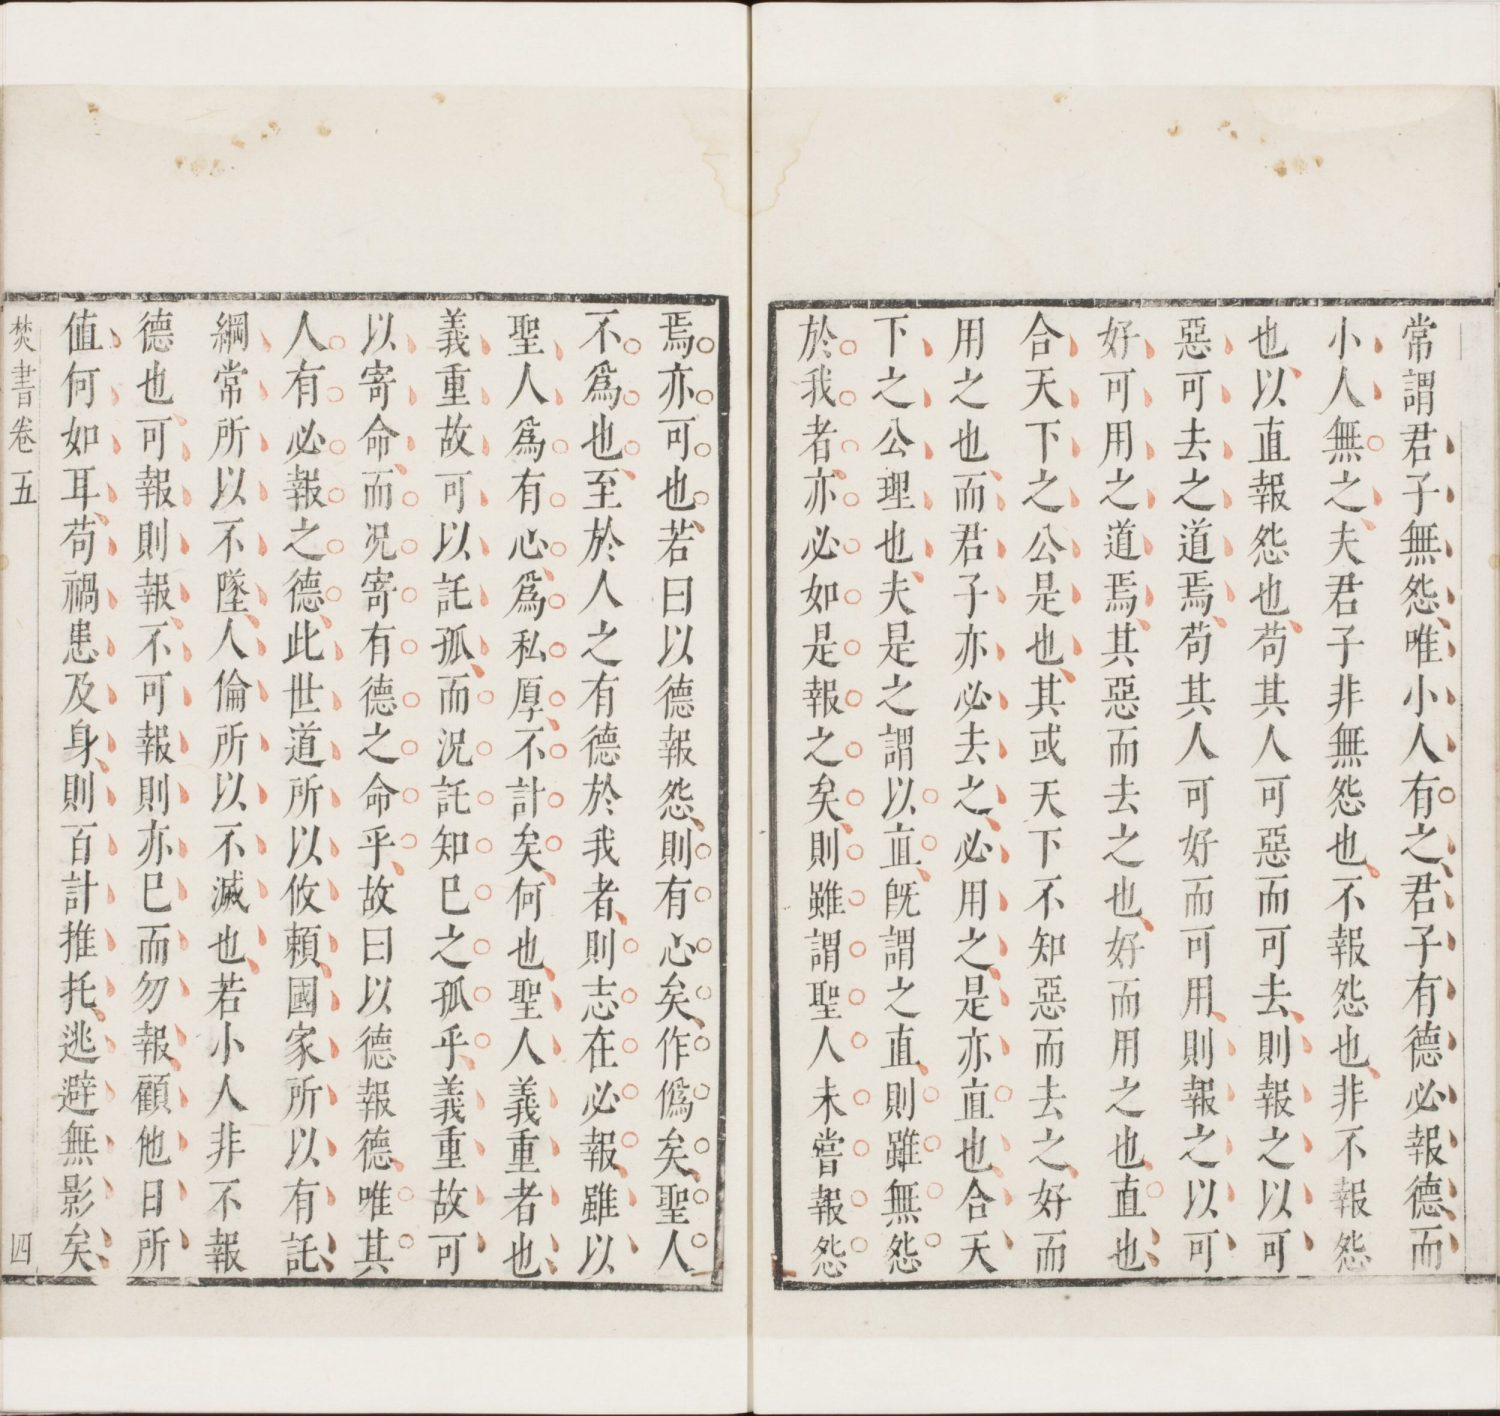 常謂君子無怨唯小人有之君子有德必報德而
小人無之夫君子非無怨也不報怨也非不報怨
也以直報怨也苟其人可惡而可去則報之以可
惡可去之道焉苟其人可好而可用則報之以可
好可用之道焉其惡而去之也好而用之也直也
合天下之公是也其或天下不知惡而去之好而
用之也而君子亦必去之必用之是亦直也合天
下之公理也夫是之謂以直既謂之直則雖無怨
於我者亦必如是報之矣則雖謂聖人未嘗報怨
焉亦可也若曰以德報怨則有心矣作僞矣聖人
不爲也至於人之有德於我者則志在必報雖以
聖人爲有心爲私厚不計矣何也聖人義重者也
義重故可以託孤而況託知已之孤乎義重故可
以寄命而況寄有德之命乎故曰以德報德唯其
人有必報之德此世道所以攸賴國家所以有託
綱常所以不墜人倫所以不滅也若小人非不報
德也可報則報不可報則亦已而勿報顧他日所
值何如耳苟禍患及身則百計推托逃避無影矣
焚書卷五 四